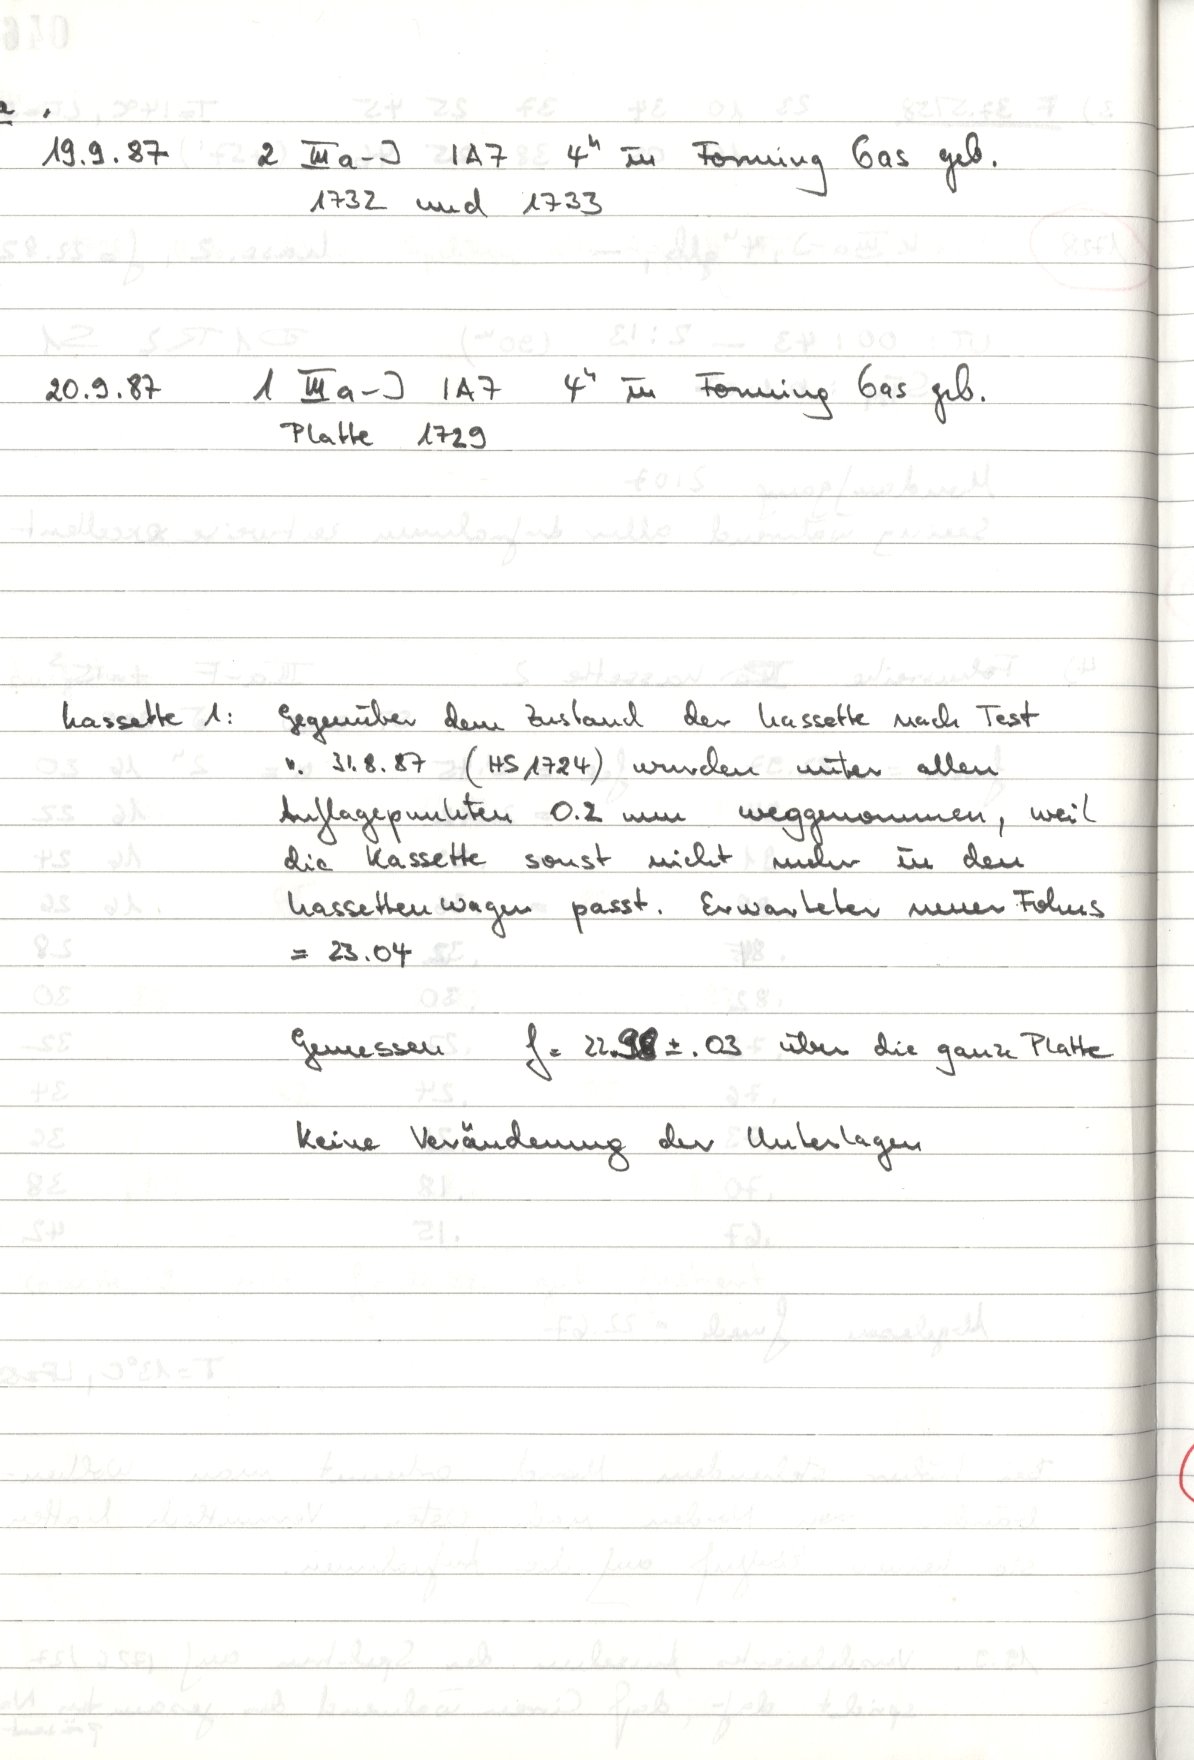 19.9.87 2 IIIa-J 1A7 4ʰ in Forming Gas geb.
1732 und 1733
20.9.87 1 IIIa-J 1A7 4ʰ in Forming Gas geb.
Platte 1729
Kassette 1: Gegenüber dem Zustand der Kassette nach Test
v. 31.8.87 (HS 1724) wurden unter allen
Auflagepunkten 0.2 mm weggenommen, weil
die Kassette sonst nicht mehr in den
Kassettenwagen passt. Erwarteter neuer Fokus
= 23.04
Gemessen f = 22.98 ± .03 über die ganze Platte
Keine Veränderung der Unterlagen